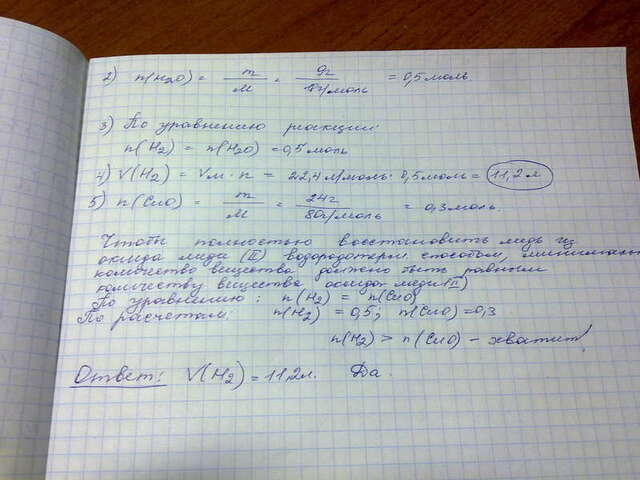 2) n(H₂O) = m/M = 9г/18г/моль = 0,5 моль
3) По уравнению реакции:
n(H₂) = n(H₂O) = 0,5 моль
4) V(H₂) = Vм · n = 22,4 л/моль · 0,5 моль = 11,2 л
5) n(CuO) = m/M = 24г/80г/моль = 0,3 моль.
Чтобы полностью восстановить медь из
оксида меди (II) водородотерм. способом, минимальн
количество вещества должно быть равным
количеству вещества оксида меди (II)
По уравнению: n(H₂) = n(CuO)
По расчетам: n(H₂) = 0,5; n(CuO) = 0,3
n(H₂) > n(CuO) – хватит!
Ответ: V(H₂) = 11,2 л. Да.